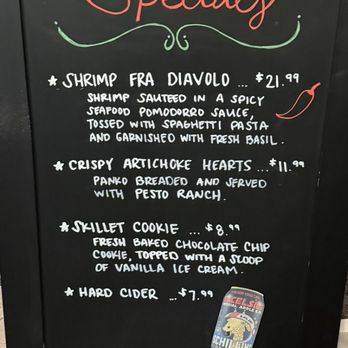 Specials
★ SHRIMP FRA DIAVOLO ... $21.99
SHRIMP SAUTEED IN A SPICY
SEAFOOD POMODORRO SAUCE,
TOSSED WITH SPAGHETTI PASTA
AND GARNISHED WITH FRESH BASIL.
★ CRISPY ARTICHOKE HEARTS ... $11.99
PANKO BREADED AND SERVED
WITH PESTO RANCH.
★ SKILLET COOKIE ... $8.99
FRESH BAKED CHOCOLATE CHIP
COOKIE, TOPPED WITH A SCOOP
OF VANILLA ICE CREAM.
★ HARD CIDER ... $7.99